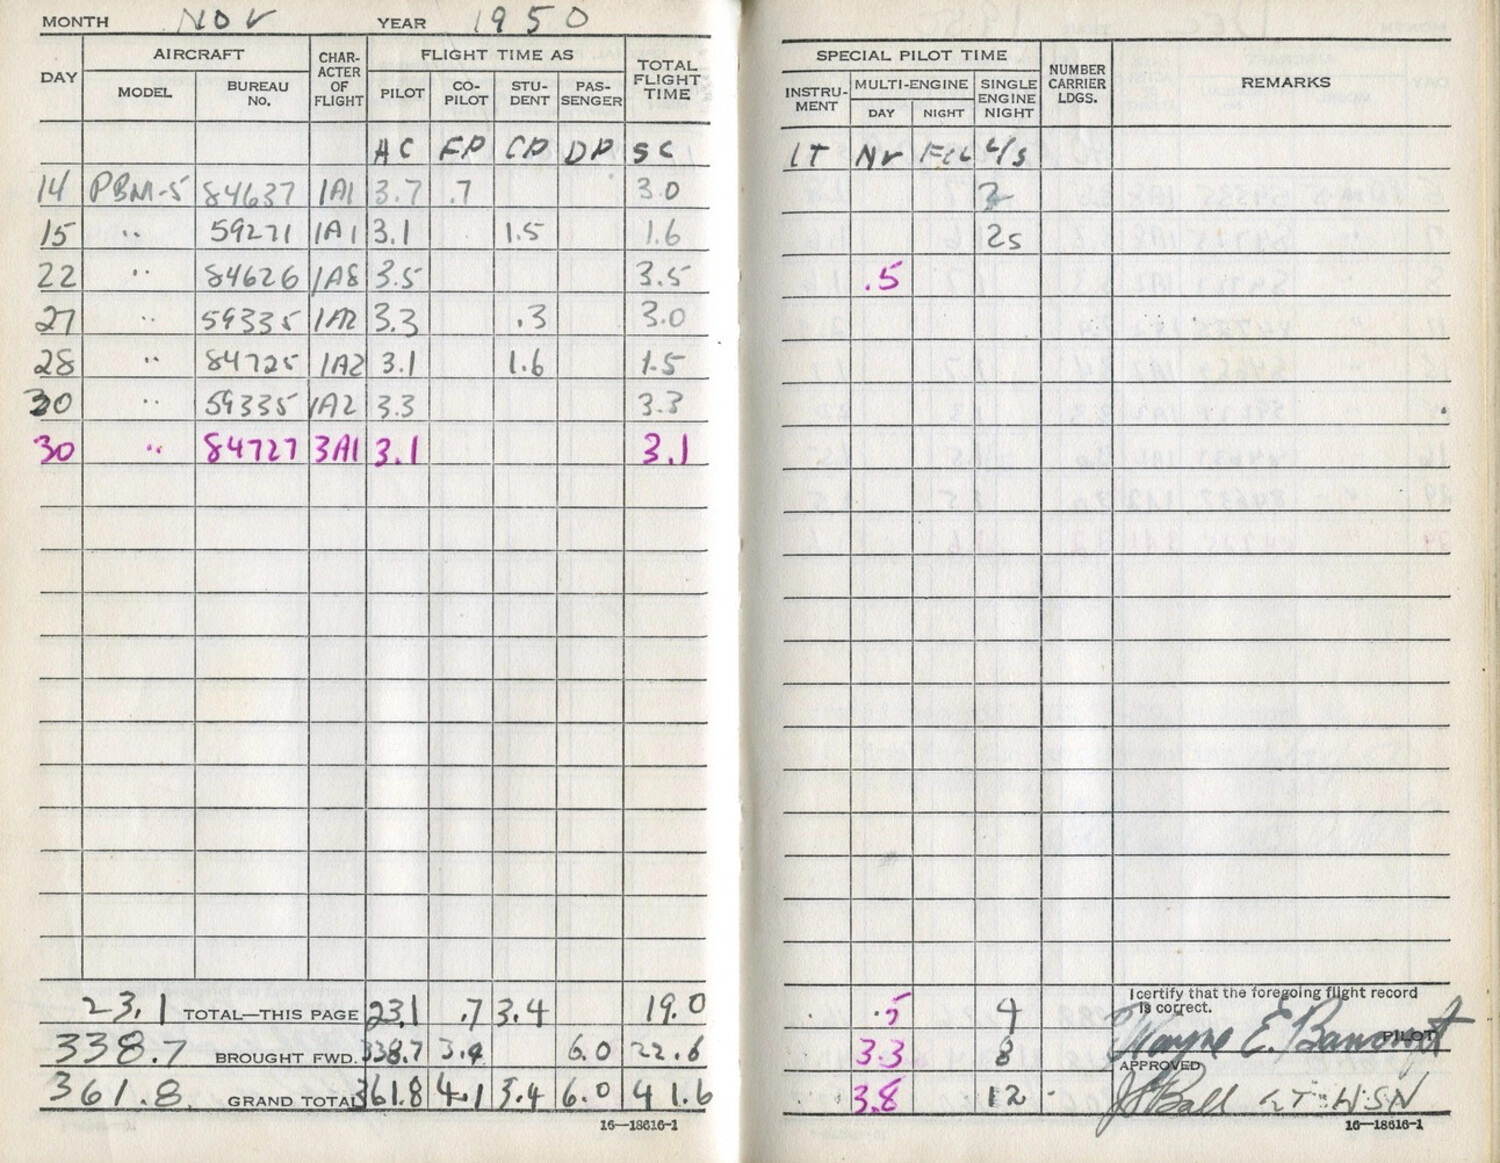 MONTH NOV YEAR 1950
DAY AIRCRAFT CHAR-ACTER OF FLIGHT FLIGHT TIME AS TOTAL FLIGHT TIME
MODEL BUREAU No. PILOT CO-PILOT STU-DENT PAS-SENGER
AC FP CP DP SC
14 PBM-5 84637 1A1 3.7 .7 3.0
15 " 59271 1A1 3.1 1.5 1.6
22 " 84626 1A8 3.5 3.5
27 " 59335 1A2 3.3 .3 3.0
28 " 84725 1A2 3.1 1.6 1.5
30 " 59335 1A2 3.3 3.3
30 " 84727 3A1 3.1 3.1
23.1 TOTAL—THIS PAGE 23.1 .7 3.4 19.0
338.7 BROUGHT FWD. 338.7 3.4 6.0 22.6
361.8 GRAND TOTAL 361.8 4.1 3.4 6.0 41.6
16—18616-1
SPECIAL PILOT TIME NUMBER CARRIER LDGS. REMARKS
INSTRU-MENT MULTI-ENGINE SINGLE ENGINE NIGHT
DAY NIGHT
IT NV L/S
2
2s
.5
.5 4
3.3 8
3.8 12
I certify that the foregoing flight record
is correct.
Wayne E. Bancroft PILOT
APPROVED
J Ball LT USN
16—18616-1